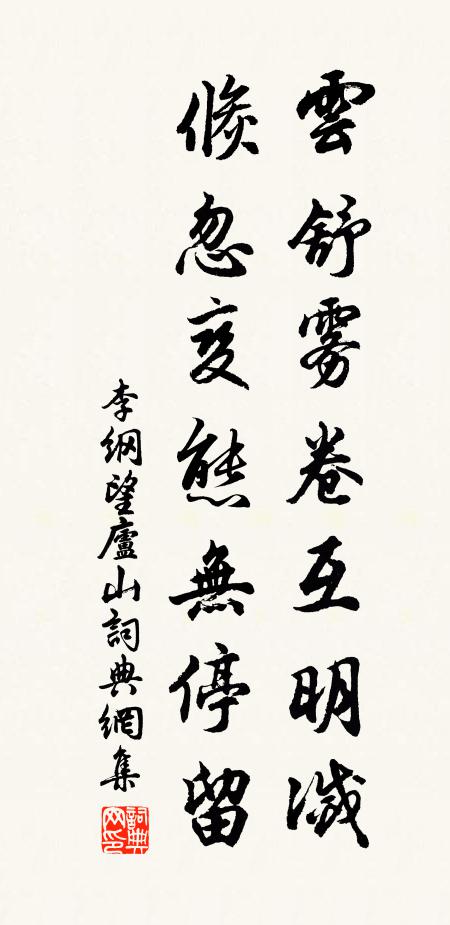 雲舒雾卷互明滅
倏忽変態無停留
李綱望廬山詞典網集
詞典网印